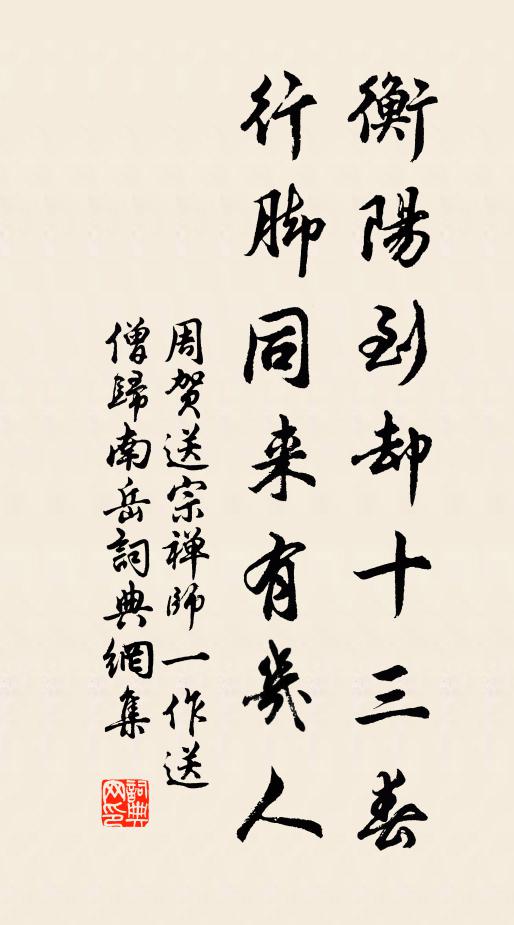 衡陽到却十三春
行脚同来有幾人
周贺送宗禅師一作送
僧歸南岳詞典網集
詞典网印